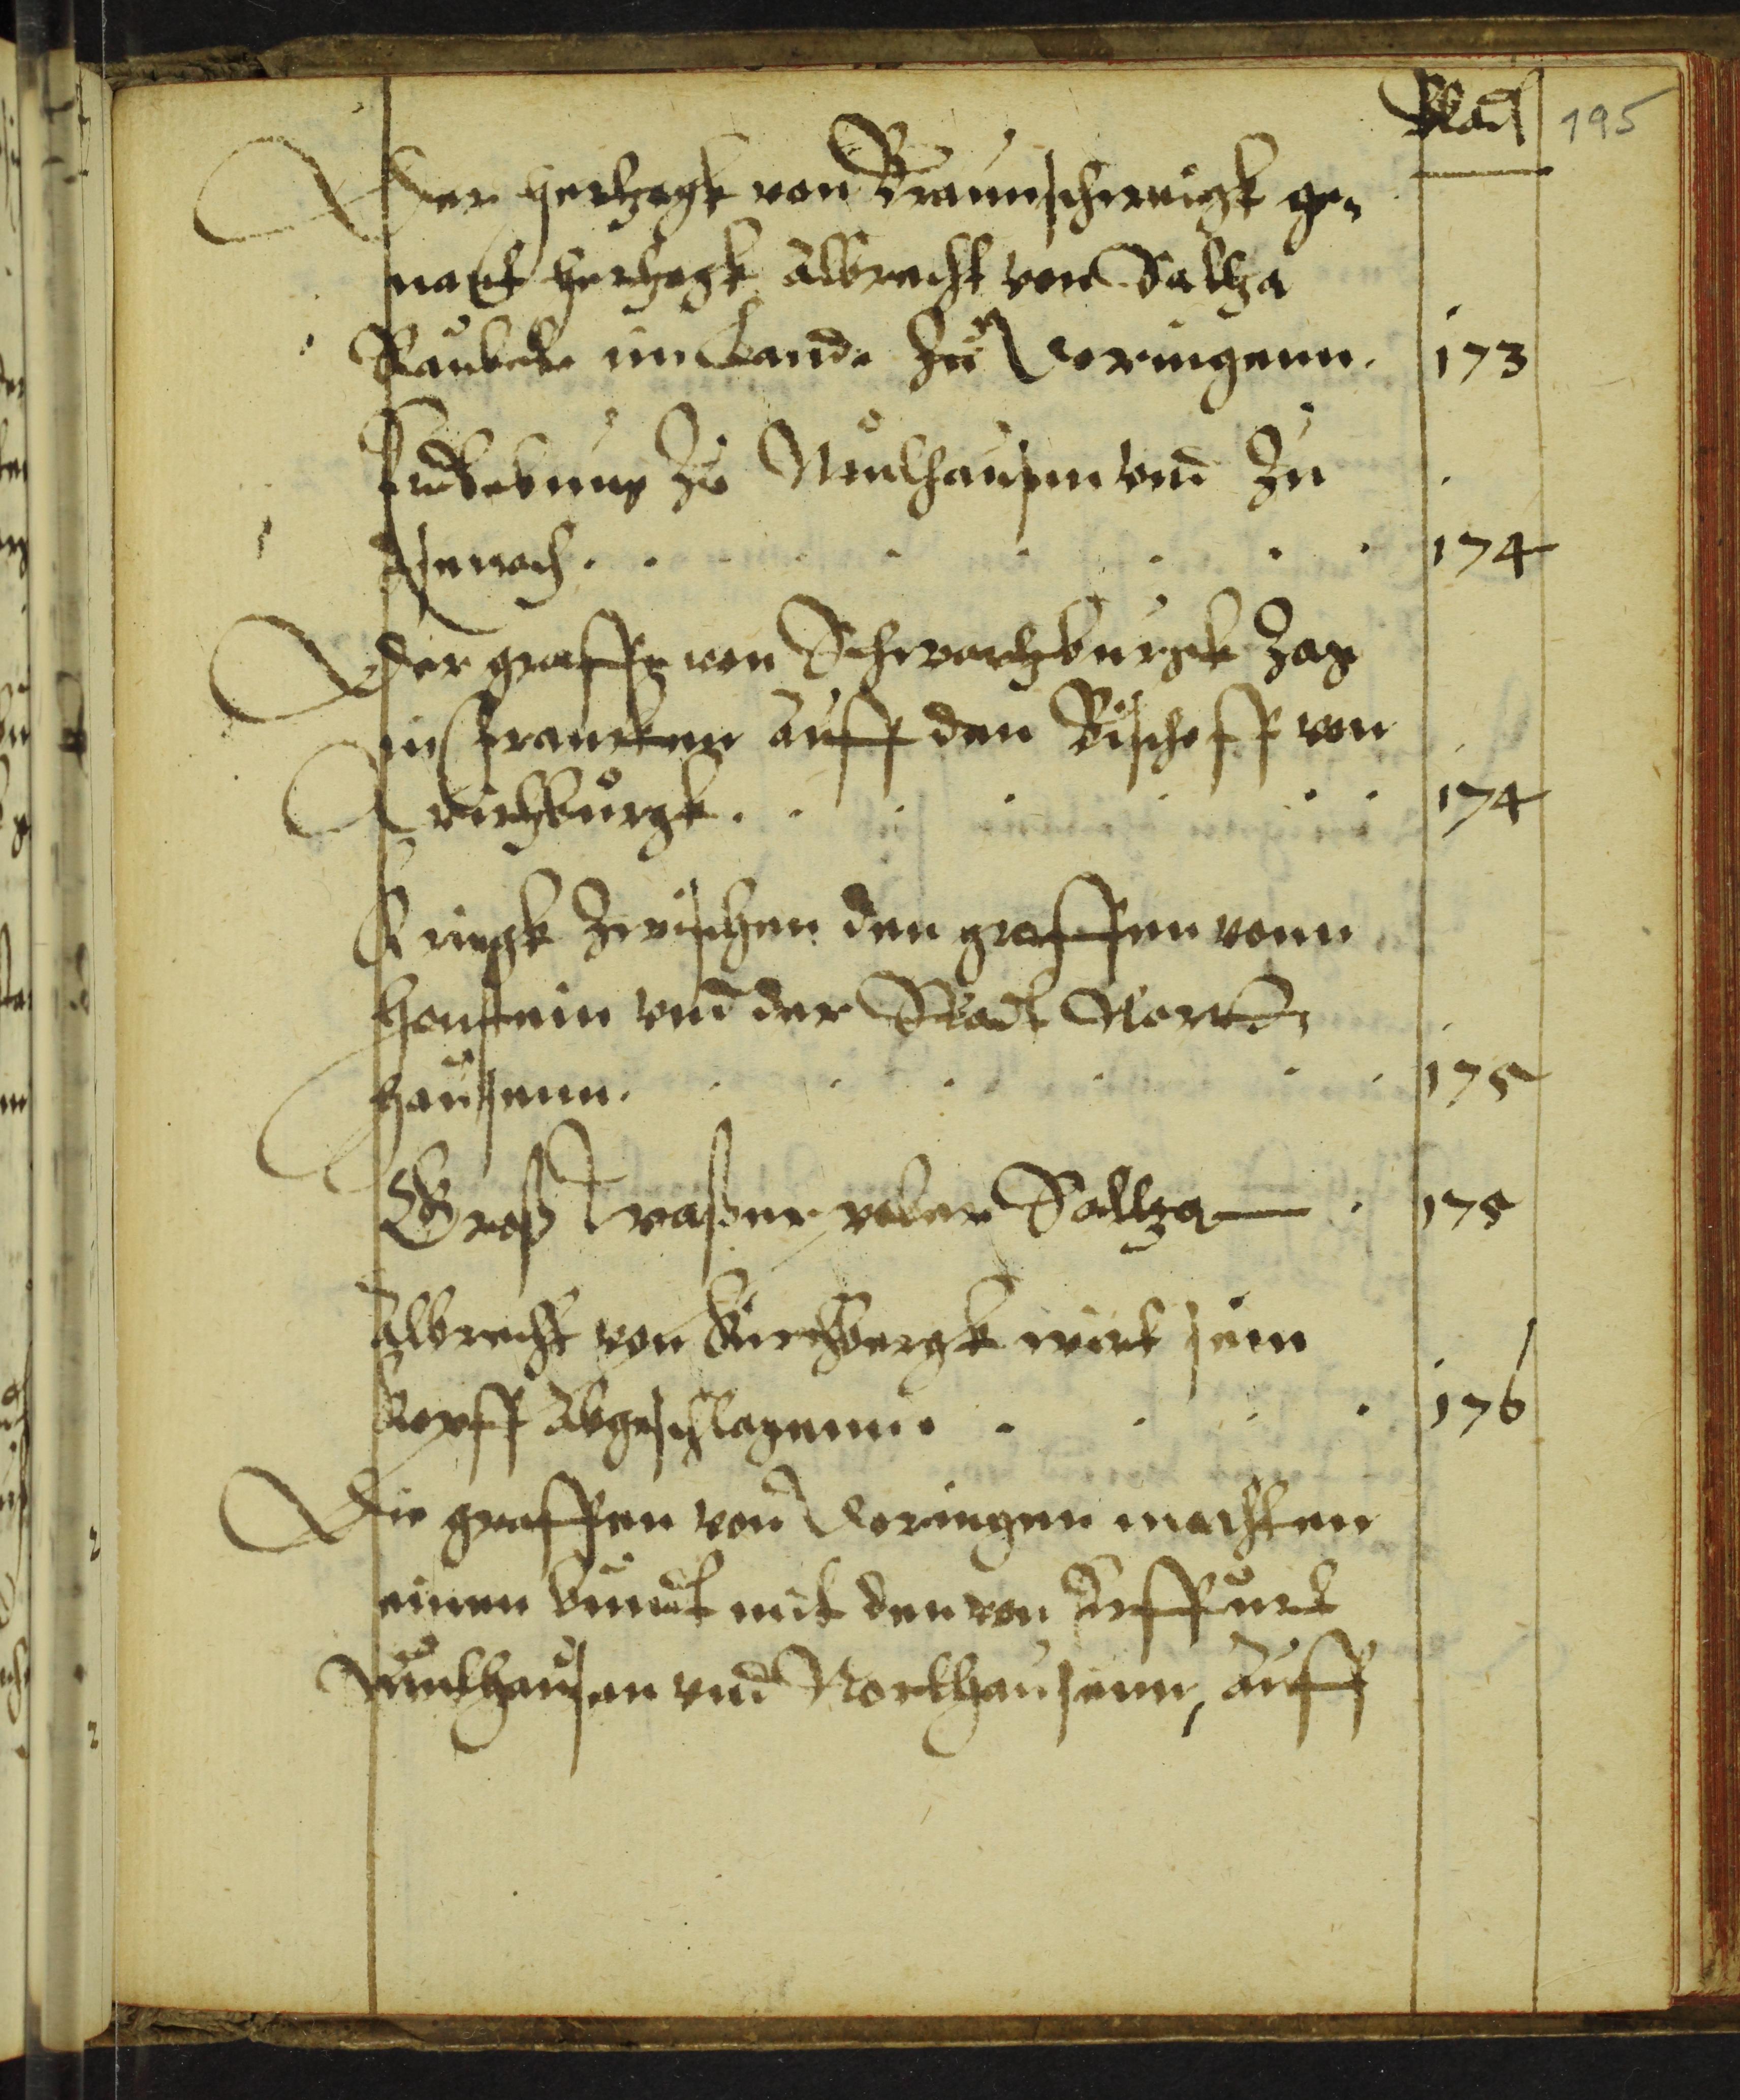 Blad
195
Der hertzogk von Braunschweigk ge-
nant hertzogk Albrecht von Saltza
Raubete im Lande zu Doringenn. 173
Erdbebung zu Mulhausen vnd zu
Isenach. 174
Der graffe von Schwartzburgk zog
in Francken auff den Bischoff von
Wirtzburgk. 174
Kriegk zwischen den graffen vonn
Honstein vnd der Stadt Nort-
hausenn. 175
Groß wasser vber Saltza 175
Albrecht von Kirchbergk wirt sein
Kopff abgeschlagenn. 176
Die graffen von Doringen machten
einen bundt mit den von Erffurt
Mulhausen vnd Northausenn, auff